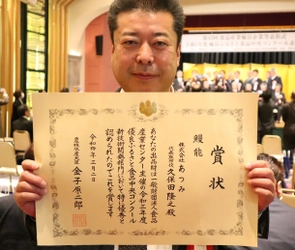 賞状
鰻龍
株式会社あつみ
代表取締役 久保田隆之殿
あなたの出品財は一般財団法人食品
産業センター主催の令和三年度
優良ふるさと食品中央コンクール
新技術開発部門において特に優秀と
認められたのでこれを賞します
令和四年三月二日
農林水産大臣 金子原二郎